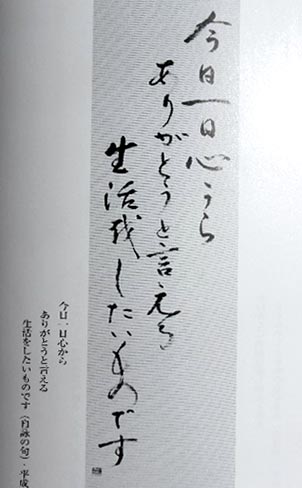 今日一日心から
ありがとうと言える
生活をしたいものです
今日一日心から
ありがとうと言える
生活をしたいものです（自詠の句）・平成